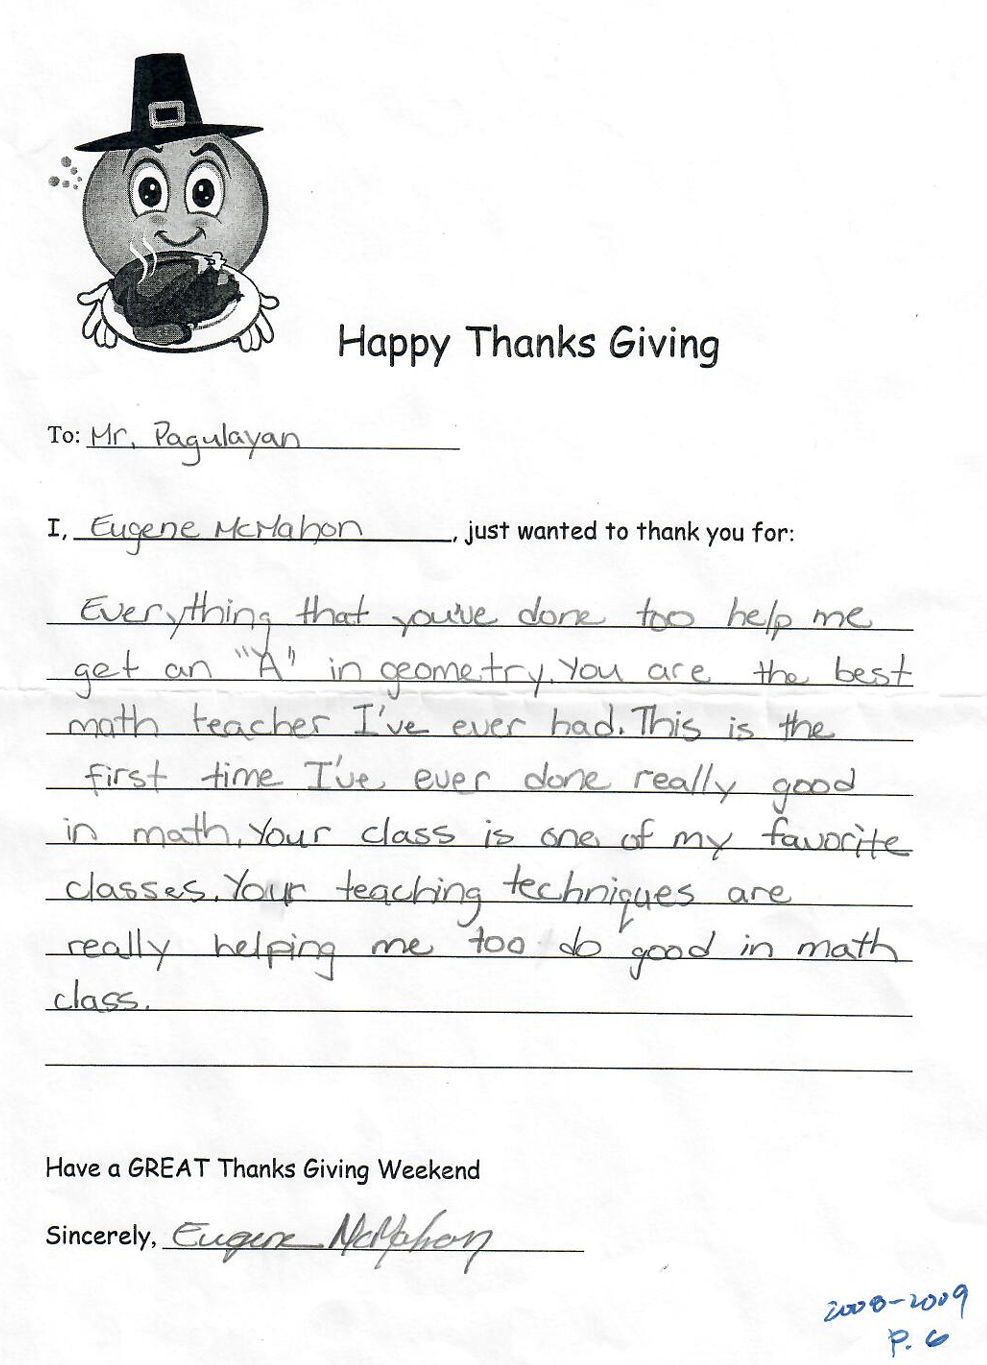 Happy Thanks Giving
To: Mr. Pagulayan
I, Eugene McMahon, just wanted to thank you for:
Everything that you've done too help me
get an "A" in geometry. You are the best
math teacher I've ever had. This is the
first time I've ever done really good
in math. Your class is one of my favorite
classes. Your teaching techniques are
really helping me too do good in math
class.
Have a GREAT Thanks Giving Weekend
Sincerely, Eugene McMahon
2008-2009
P. 6